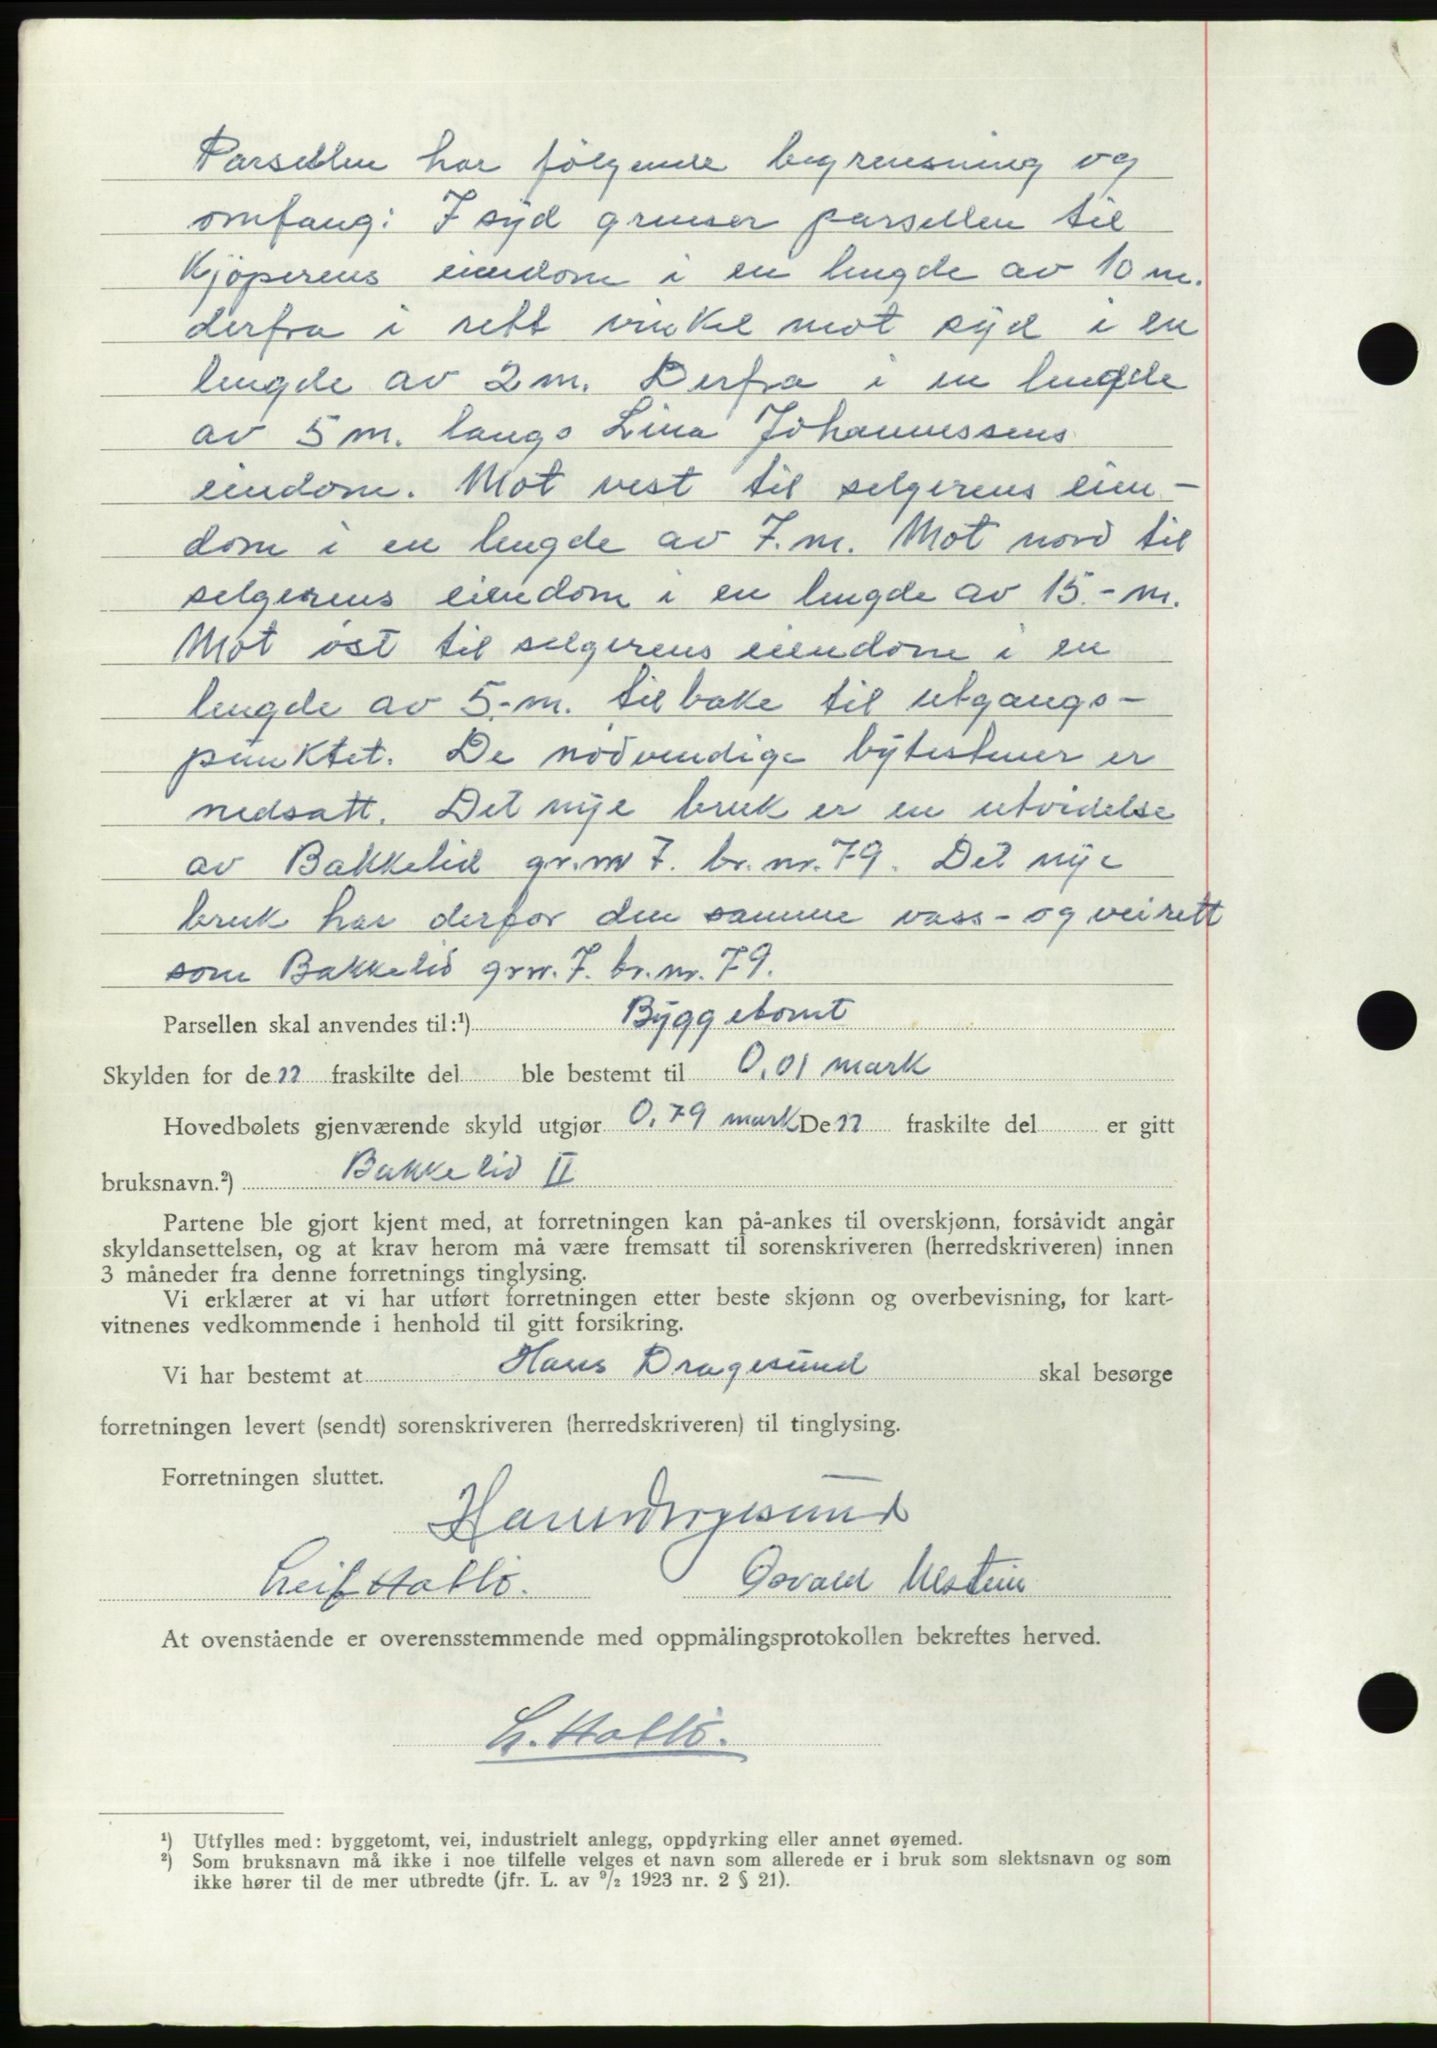 Parsellen har følgende begrensning og
omfang: I syd grenser parsellen til
Kjøperens eiendom i en lengde av 10 m.
derfra i rett vinkel mot syd i en
lengde av 2 m. Derfra i en lengde
av 5 m. langs Lina Johannessens
eiendom. Mot vest til selgerens eien-
dom i en lengde av 7. m. Mot nord til
selgerens eiendom i en lengde av 15.- m.
Mot øst til selgerens eiendom i en
lengde av 5.- m. tilbake til utgangs-
punktet. De nødvendige bytestener er
nedsatt. Det nye bruk er en utvidelse
av Bakkelid gr.nr 7. br. nr. 79. Det nye
bruk har derfor den samme vass- og veirett
som Bakkelid grnr. 7. br. nr. 79.
Parsellen skal anvendes til:¹) Byggetomt
Skylden for de nn fraskilte del ble bestemt til 0,01 mark
Hovedbølets gjenværende skyld utgjør 0,79 mark De nn fraskilte del er gitt
bruksnavn.²) Bakkelid II
Partene ble gjort kjent med, at forretningen kan på-ankes til overskjønn, forsåvidt angår
skyldansettelsen, og at krav herom må være fremsatt til sorenskriveren (herredskriveren) innen
3 måneder fra denne forretnings tinglysing.
Vi erklærer at vi har utført forretningen etter beste skjønn og overbevisning, for kart-
vitnenes vedkommende i henhold til gitt forsikring.
Vi har bestemt at Hans Dragesund skal besørge
forretningen levert (sendt) sorenskriveren (herredskriveren) til tinglysing.
Forretningen sluttet.
Hans Dragesund
Leif Hatlø. Osvald Ulstein
At ovenstående er overensstemmende med oppmålingsprotokollen bekreftes herved.
L. Hatlø.
¹) Utfylles med: byggetomt, vei, industrielt anlegg, oppdyrking eller annet øyemed.
²) Som bruksnavn må ikke i noe tilfelle velges et navn som allerede er i bruk som slektsnavn og som
ikke hører til de mer utbredte (jfr. L. av ⁹/₂ 1923 nr. 2 § 21).